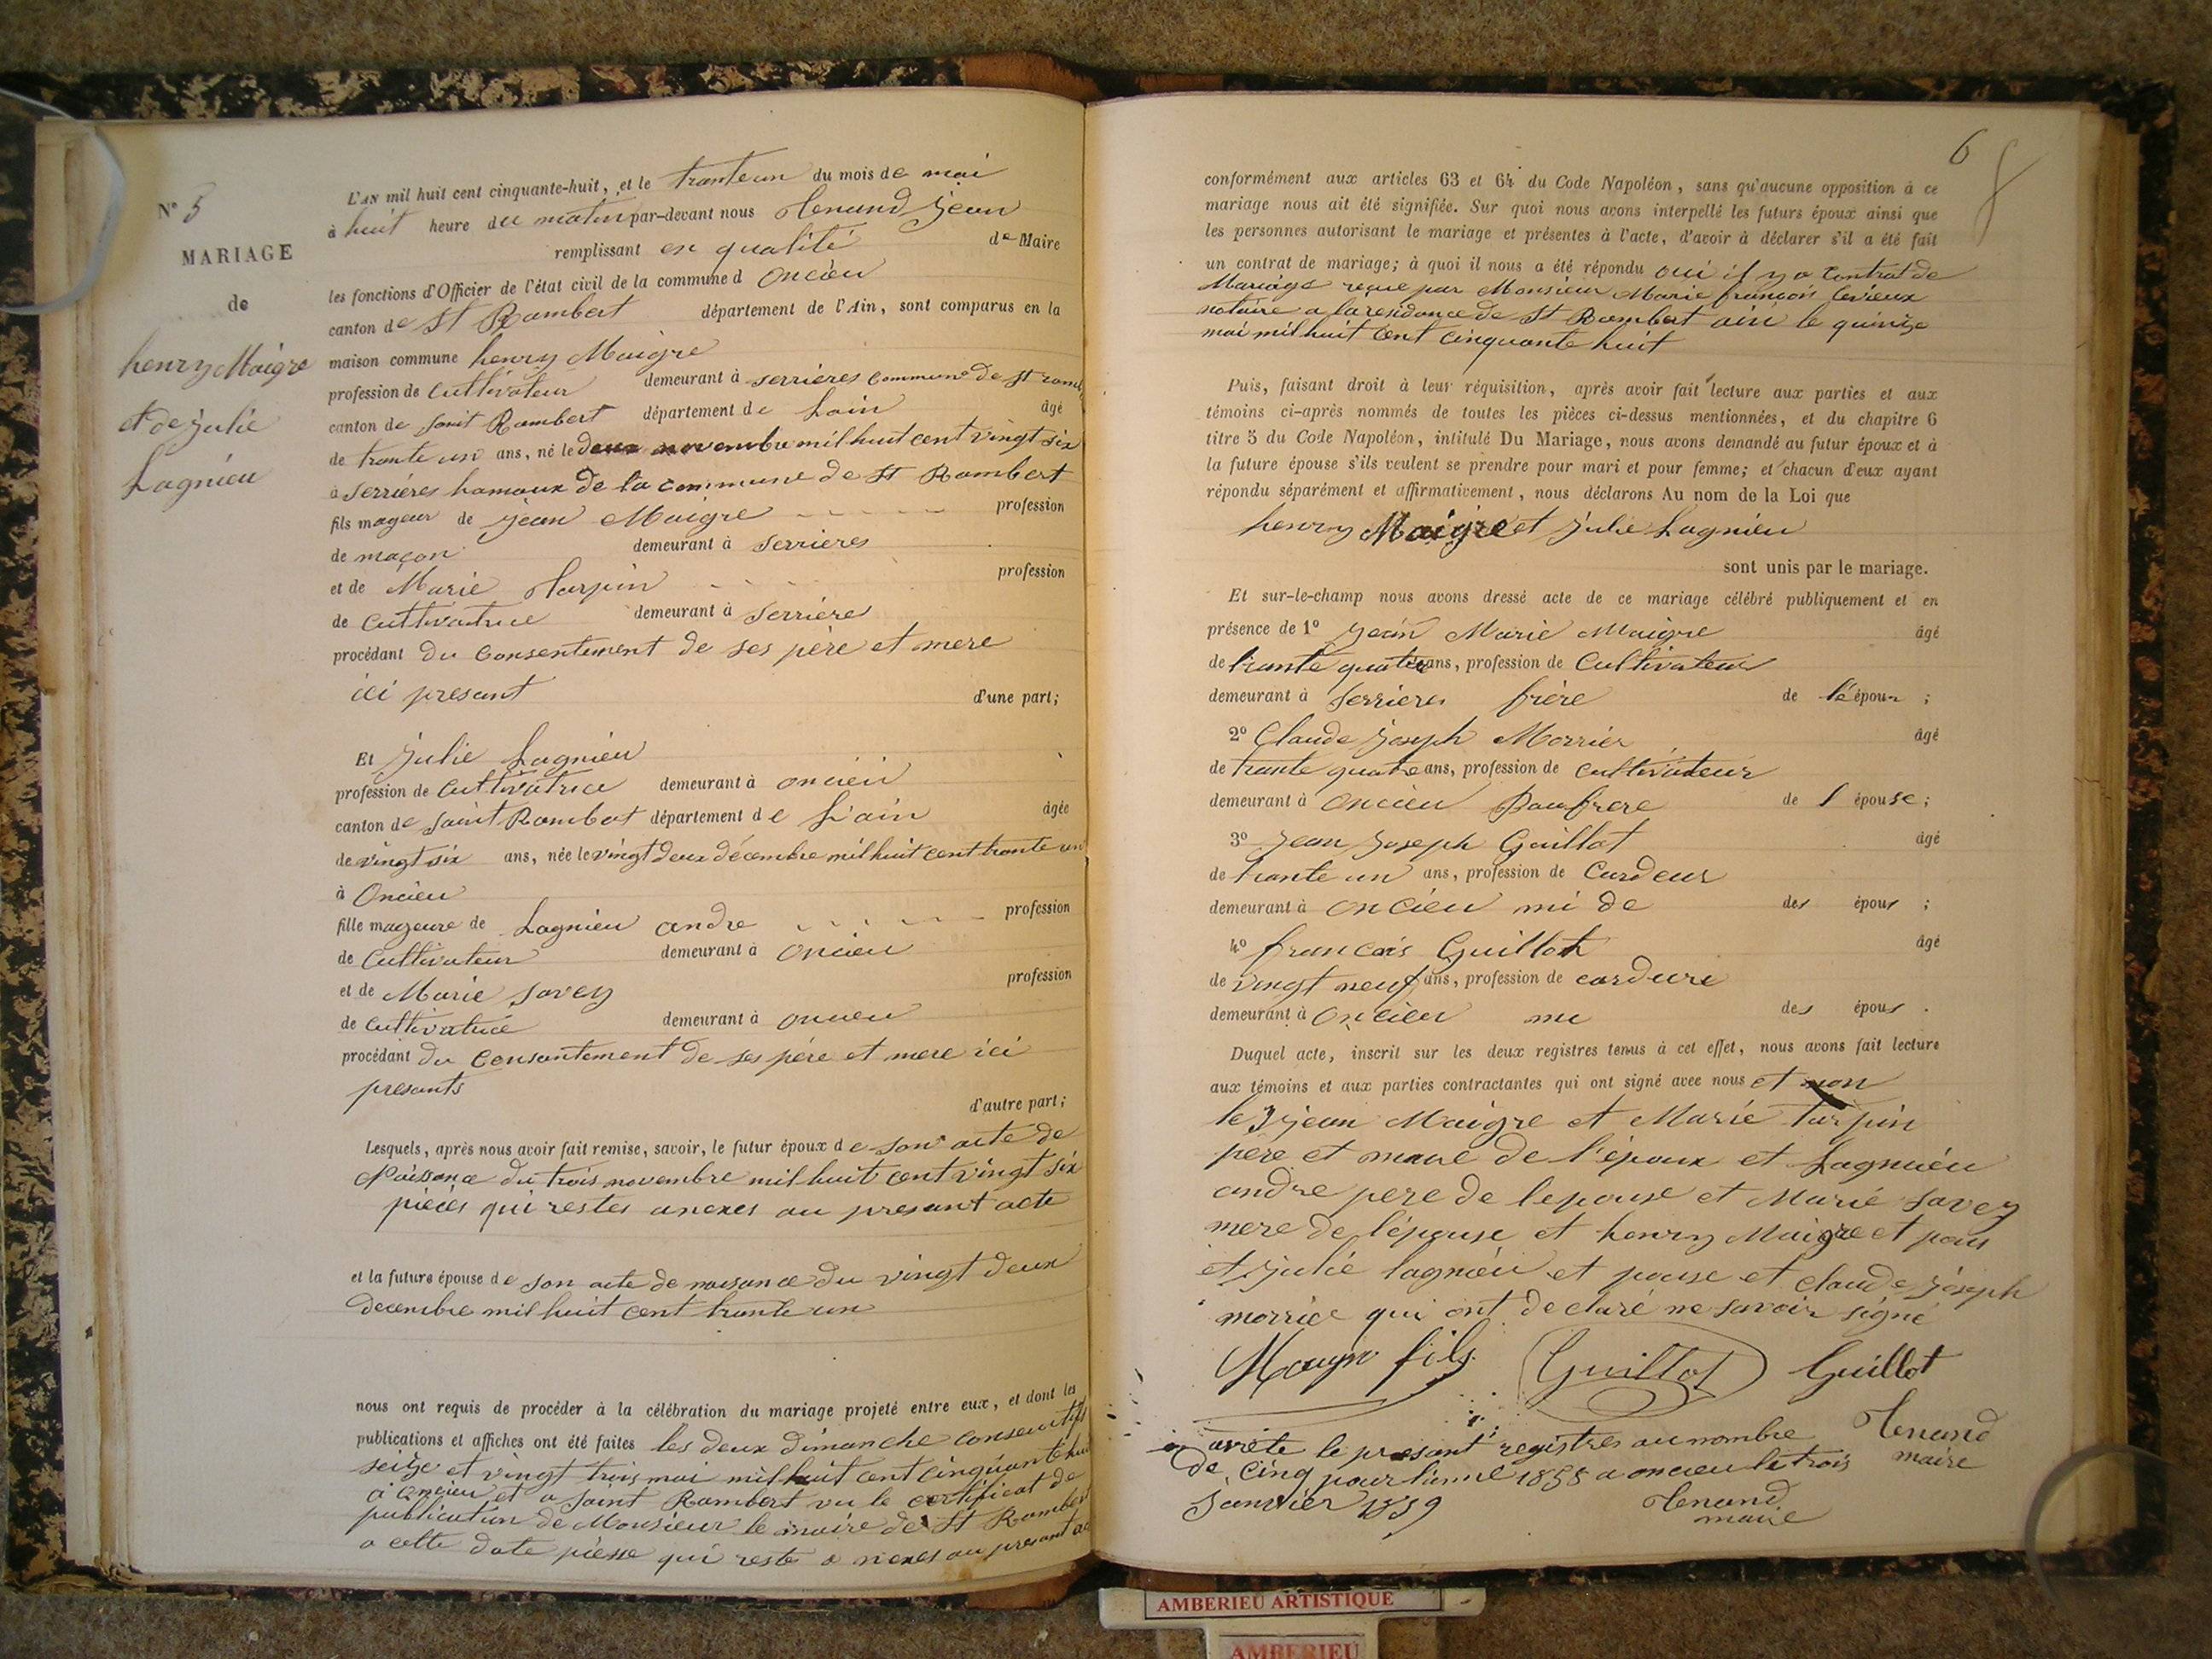 N° 5
MARIAGE
de
henry Maigre
et de julie
Lagnieu
L'AN mil huit cent cinquante-huit, et le tranteun du mois de mai
à huit heure du matin par-devant nous Tenand jean
remplissant en qualité de Maire
les fonctions d'Officier de l'état civil de la commune d oncieu
canton de St Rambert département de l'Ain, sont comparus en la
maison commune henry Maigre
profession de cultivateur demeurant à serrières commune de St ramb
canton de saint Rambert département de Lain âgé
de trante un ans, né le deux novembre mil huit cent vingt six
à serriéres hamaux de la commune de St Rambert
fils mageur de jean Maigre profession
de maçon demeurant à serrieres
et de Marie Turpin profession
de cultivatrice demeurant à serriére
procédant du consentement de ses père et mere
ici presant d'une part;
Et julie Lagnieu
profession de cultivatrice demeurant à oncieu
canton de saint Rambert département de L'ain âgée
de vingt six ans, née le vingt deux décembre mil huit cent trante un
à oncieu
fille mageure de Lagnieu andre profession
de cultivateur demeurant à oncieu
et de Marie savey profession
de cultivatrice demeurant à oncieu
procédant du consantement de ses pére et mere ici
presants
d'autre part;
Lesquels, après nous avoir fait remise, savoir, le futur époux de son acte de
Naissance du trois novembre mil huit cent vingt six
pièces qui restes anexes au presant acte
et la future épouse de son acte de naisance du vingt deux
decembre mil huit cent trante un
nous ont requis de procéder à la célébration du mariage projeté entre eux, et dont les
publications et affiches ont été faites les deux dimanche consecutifs
seize et vingt trois mai mil huit cent cinquante hui
a oncieu et a saint Rambert vu le certificat de
publication de Monsieur le maire de St Rambert
a cette date piesse qui reste a nexes au presant ac
6
conformément aux articles 63 et 64 du Code Napoléon, sans qu'aucune opposition à ce
mariage nous ait été signifiée. Sur quoi nous avons interpellé les futurs époux ainsi que
les personnes autorisant le mariage et présentes à l'acte, d'avoir à déclarer s'il a été fait
un contrat de mariage; à quoi il nous a été répondu oui il y a contrat de
Mariage reçue par Monsieur Marie françois levieux
notaire a la residance de St Rambert ain le quinze
mai mil huit cent cinquante huit
Puis, faisant droit à leur réquisition, après avoir fait lecture aux parties et aux
témoins ci-après nommés de toutes les pièces ci-dessus mentionnées, et du chapitre 6
titre 5 du Code Napoléon, intitulé Du Mariage, nous avons demandé au futur époux et à
la future épouse s'ils veulent se prendre pour mari et pour femme; et chacun d'eux ayant
répondu séparément et affirmativement, nous déclarons Au nom de la Loi que
henry Maigre et julie Lagnieu
sont unis par le mariage.
Et sur-le-champ nous avons dressé acte de ce mariage célébré publiquement et en
présence de 1° jean Marie Maigre âgé
de trante quatre ans, profession de cultivateur
demeurant à serrieres frère de l'époux ;
2° Claude joseph Morrier âgé
de trante quatre ans, profession de cultivateur
demeurant à oncieu Baufrere de l épouse;
3° jean joseph Guillot âgé
de trante un ans, profession de cardeur
demeurant à oncieu mi de des épous ;
4° francois Guillot âgé
de vingt neuf ans, profession de cardeure
demeurant à oncieu mi des épous .
Duquel acte, inscrit sur les deux registres tenus à cet effet, nous avons fait lecture
aux témoins et aux parties contractantes qui ont signé avec nous et non
le jean Maigre et Marie turpin
père et mere de l'époux et Lagnieu
andre pere de lepouse et Marie savey
mere de l'épouse et henry Maigre et poux
et julie lagnieu et pouse et claude joseph
morrier qui ont declaré ne savoir signé
Maigre fils. Guillot Guillot
Tenand
maire
arrete le presant registres au nombre
de cinq pour l'anné 1858 a oncieu le trois
Janvier 1859 Tenand
maire
AMBERIEU ARTISTIQUE
AMBERIEU